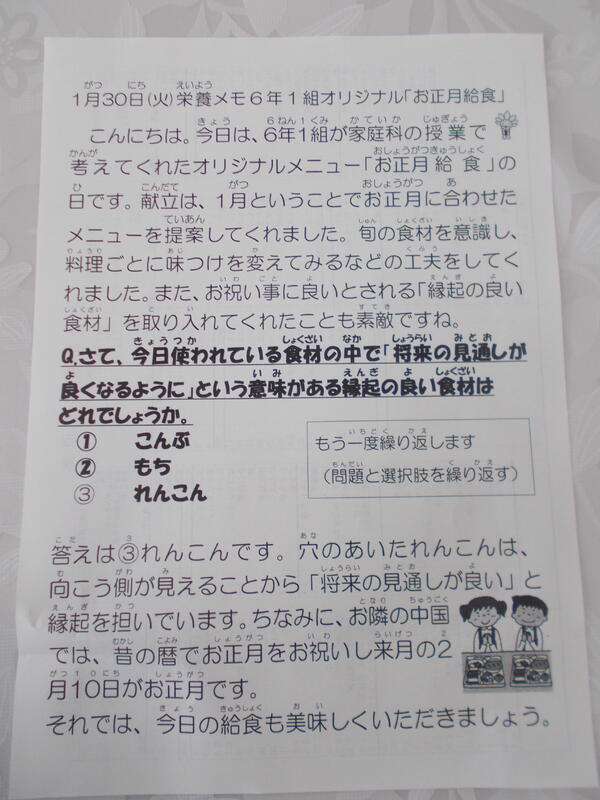 1月30日(火)栄養メモ6年1組オリジナル「お正月給食」
こんにちは。今日は、6年1組が家庭科の授業で
考えてくれたオリジナルメニュー「お正月給食」の
日です。献立は、1月ということでお正月に合わせた
メニューを提案してくれました。旬の食材を意識し、
料理ごとに味つけを変えてみるなどの工夫をしてく
れました。また、お祝い事に良いとされる「縁起の良い
食材」を取り入れてくれたことも素敵ですね。
Q.さて、今日使われている食材の中で「将来の見通しが
良くなるように」という意味がある縁起の良い食材は
どれでしょうか。
① こんぶ
② もち
③ れんこん
もう一度繰り返します
(問題と選択肢を繰り返す)
答えは③れんこんです。穴のあいたれんこんは、
向こう側が見えることから「将来の見通しが良い」と
縁起を担いでいます。ちなみに、お隣の中国
では、昔の暦でお正月をお祝いし来月の2
月10日がお正月です。
それでは、今日の給食も美味しくいただきましょう。